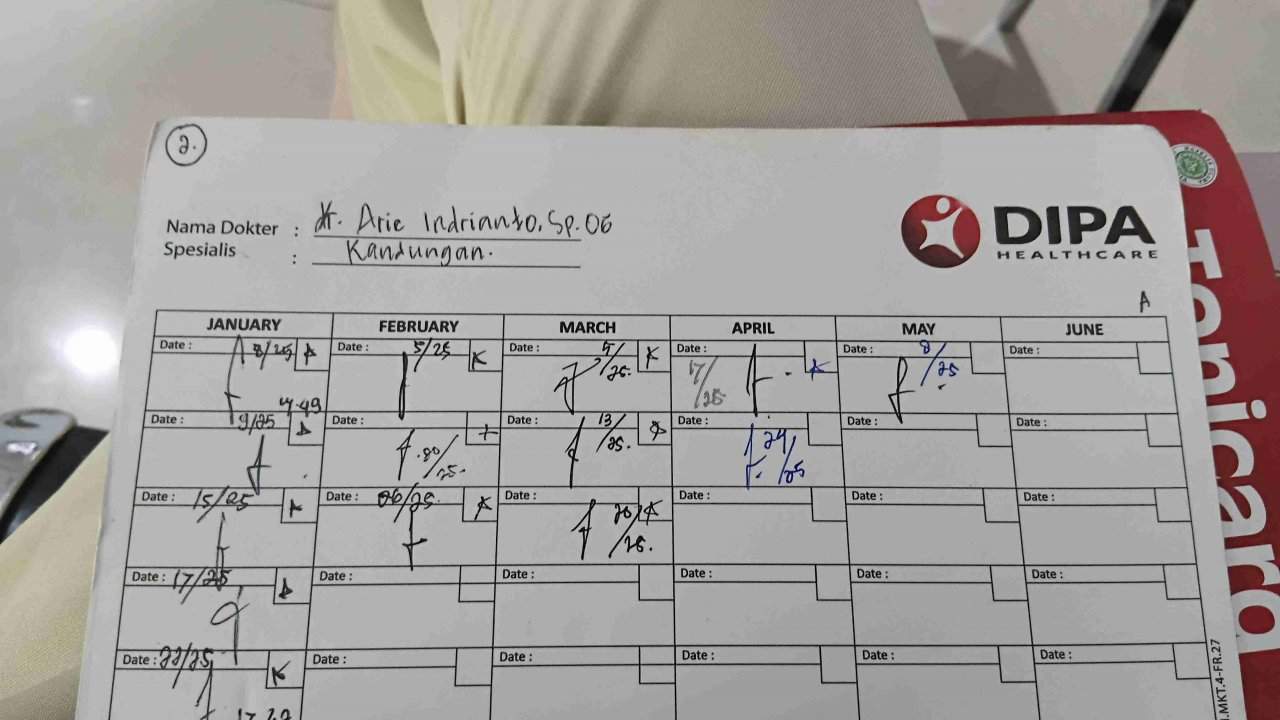 2.
Nama Dokter : dr. Arie Indrianto, Sp.OG
Spesialis : Kandungan.
DIPA
HEALTHCARE
A
JANUARY FEBRUARY MARCH APRIL MAY JUNE
Date : 8/25 Date : 5/25 K Date : 5/25. K Date : 17/25 K Date : 8/25 Date :
Date : 9/25 Date : 20/25. Date : 13/25. Date : 24/25 Date : Date :
Date : 15/25 Date : 26/25. Date : 20/25. Date : Date : Date :
Date : 17/25 Date : Date : Date : Date : Date :
Date : 22/25 K Date : Date : Date : Date : Date :
17.49
MKT.4-FR.27
Tonicard